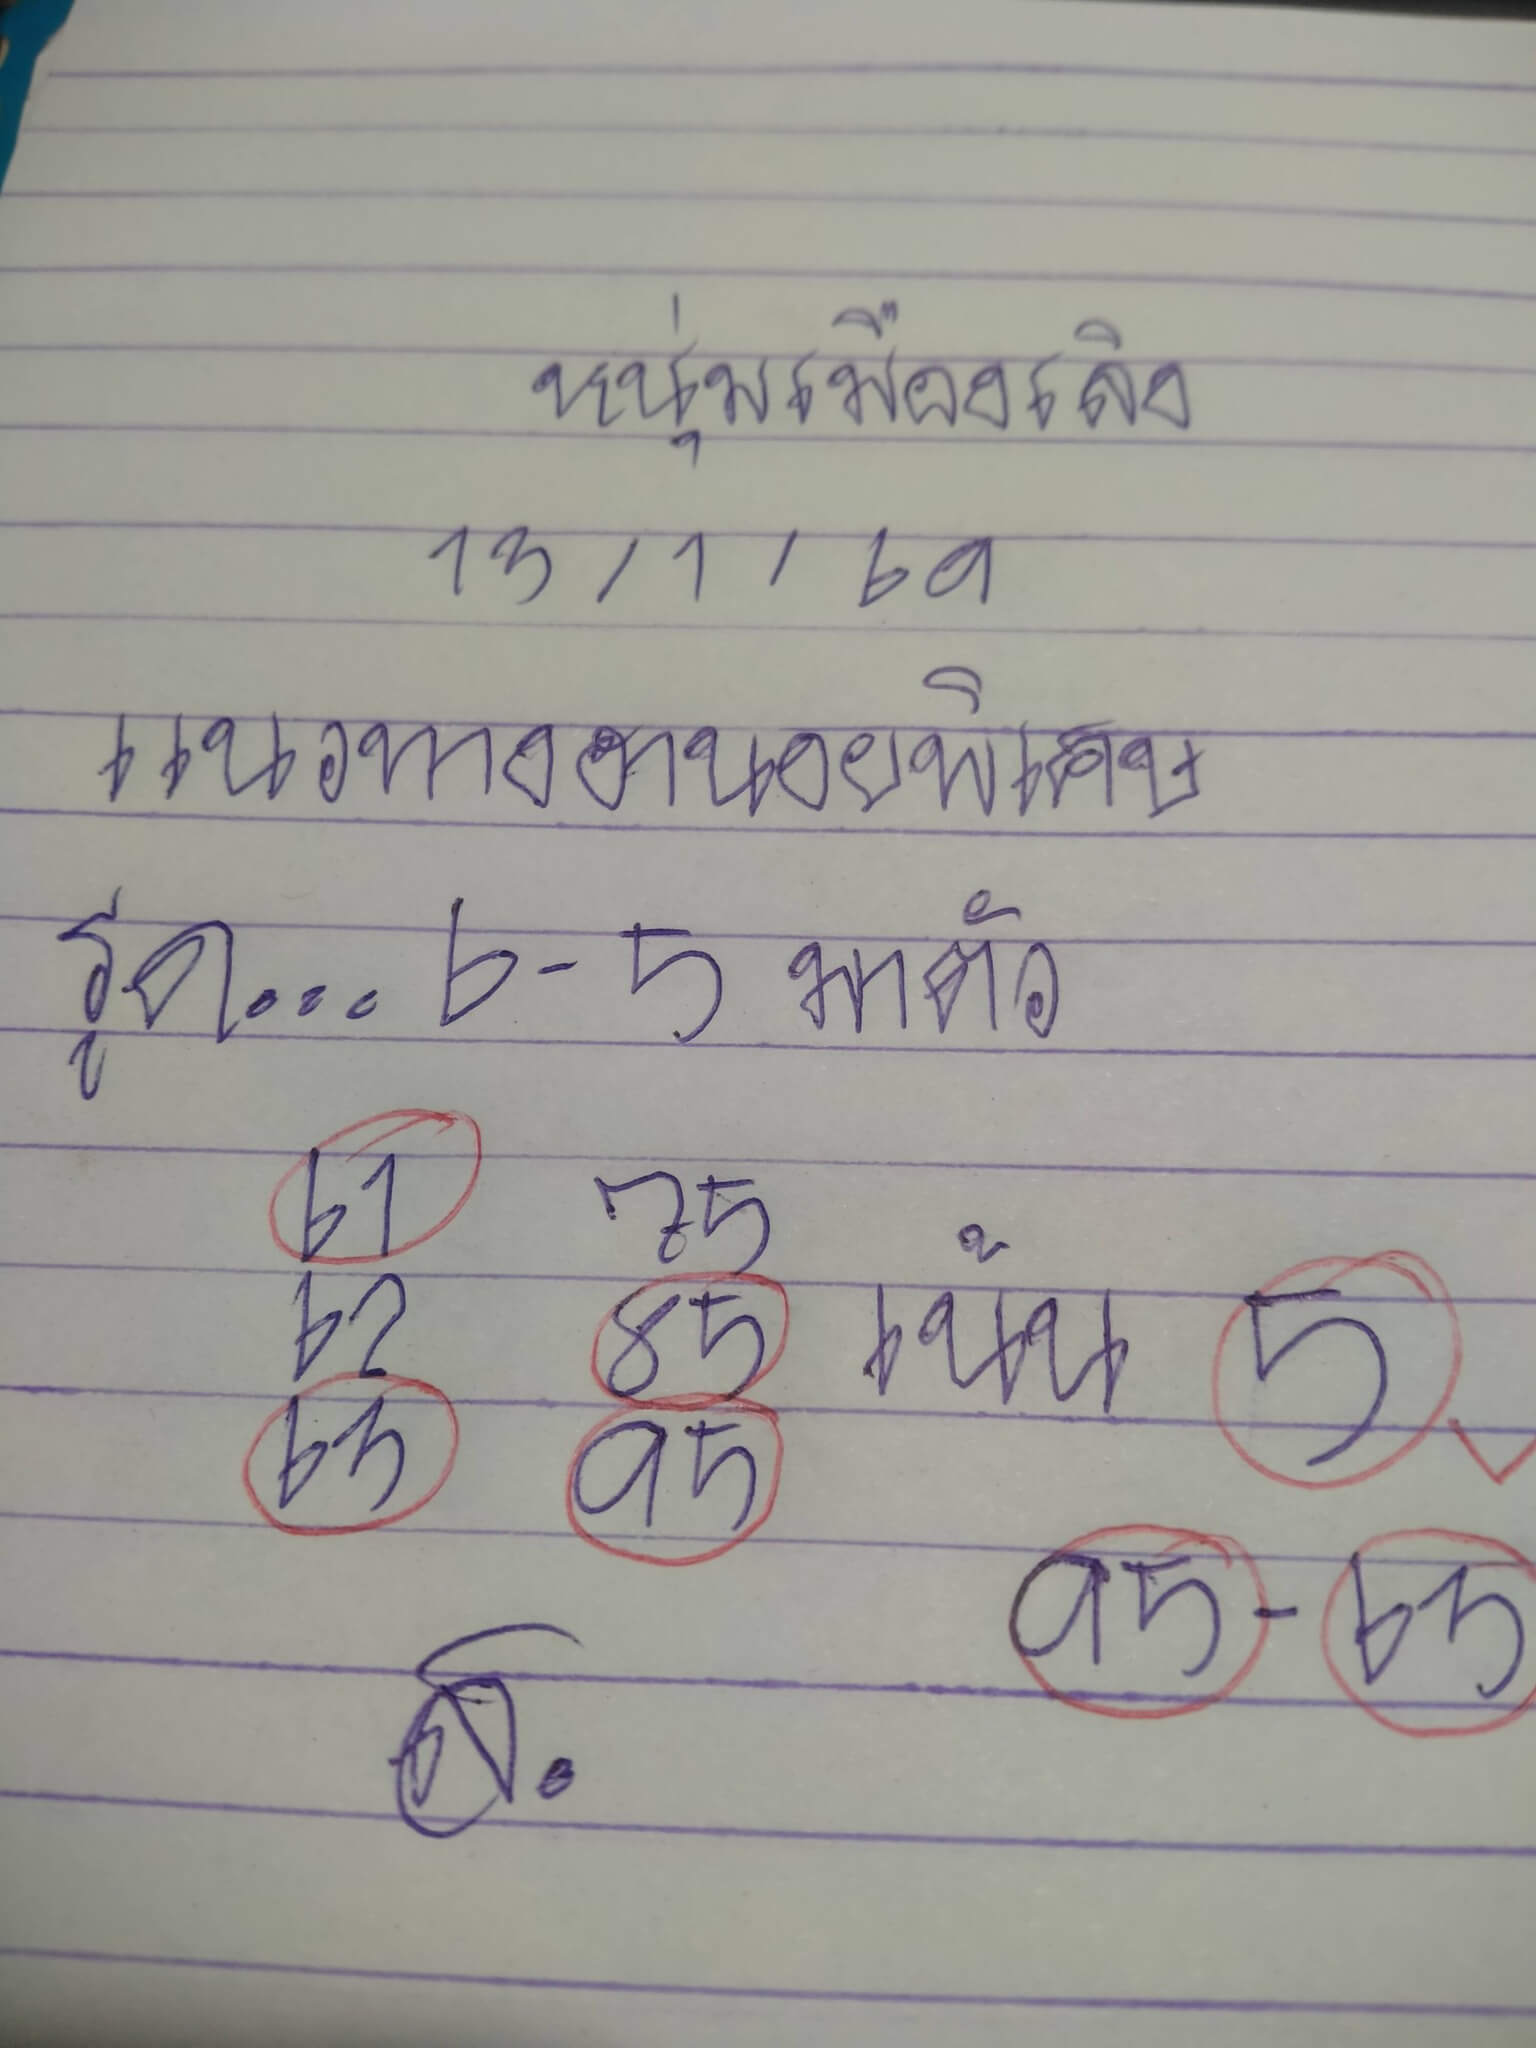 หนุ่มเมืองเลิง
13/1/69
แนวทางฮานอยพิเศษ
รูด... 6-5 มาตัว
61 75
62 85 เน้น 5
63 95
95-63